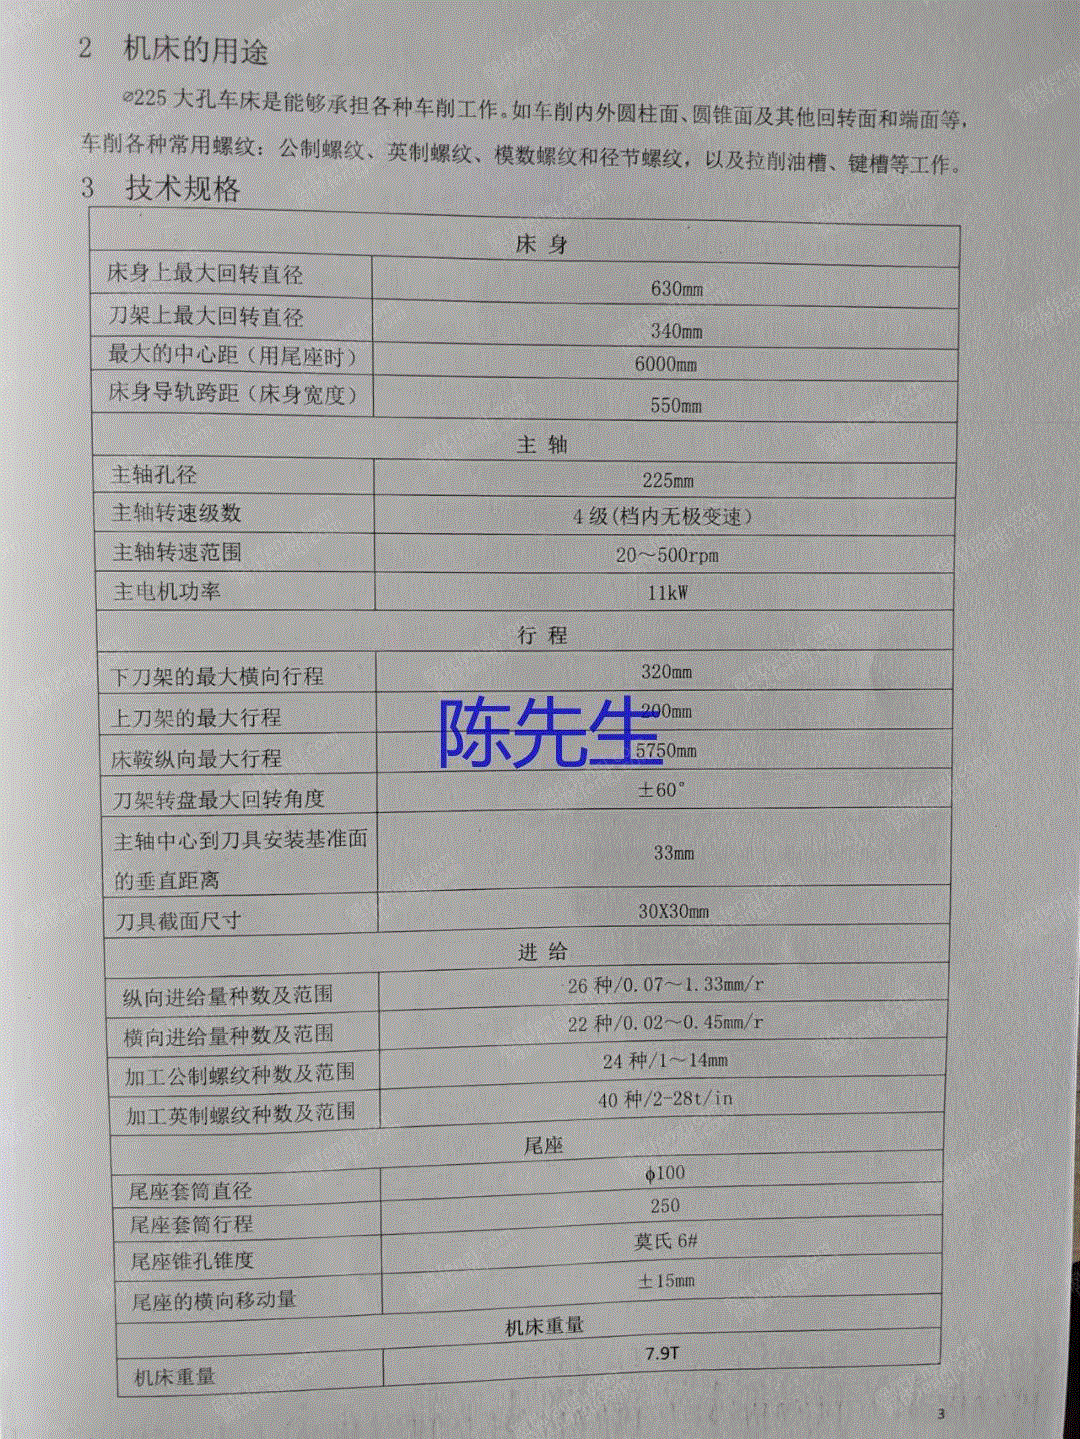 2 机床的用途
⌀225 大孔车床是能够承担各种车削工作。如车削内外圆柱面、圆锥面及其他回转面和端面等，
车削各种常用螺纹：公制螺纹、英制螺纹、模数螺纹和径节螺纹，以及拉削油槽、键槽等工作。
3 技术规格
床 身
床身上最大回转直径 630mm
刀架上最大回转直径 340mm
最大的中心距（用尾座时） 6000mm
床身导轨跨距（床身宽度） 550mm
主 轴
主轴孔径 225mm
主轴转速级数 4 级(档内无极变速）
主轴转速范围 20～500rpm
主电机功率 11kW
行 程
下刀架的最大横向行程 320mm
上刀架的最大行程 200mm
陈先生
床鞍纵向最大行程 5750mm
刀架转盘最大回转角度 ±60°
主轴中心到刀具安装基准面
的垂直距离 33mm
刀具截面尺寸 30X30mm
进 给
纵向进给量种数及范围 26 种/0.07～1.33mm/r
横向进给量种数及范围 22 种/0.02～0.45mm/r
加工公制螺纹种数及范围 24 种/1～14mm
加工英制螺纹种数及范围 40 种/2-28t/in
尾座
尾座套筒直径 ϕ100
尾座套筒行程 250
尾座锥孔锥度 莫氏 6#
尾座的横向移动量 ±15mm
机床重量
机床重量 7.9T
3